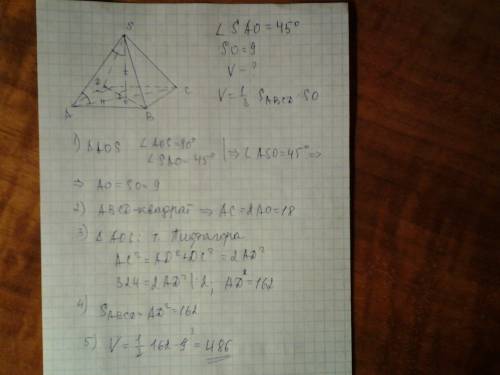 S
A
B
C
∠SAO = 45°
SO = 9
V – ?
V = 1/3 S_ABCD · SO
1) ΔAOS ∠AOS = 90°
∠SAO = 45° | ⇒ ∠ASO = 45° ⇒
⇒ AO = SO = 9
2) ABCD – квадрат ⇒ AC = 2AO = 18
3) Δ ADC: т. Пифагора
AC² = AD² + DC² = 2AD²
324 = 2AD² | : 2; AD² = 162
4) S_ABCD = AD² = 162
5) V = 1/3 · 162 · 9 = 486